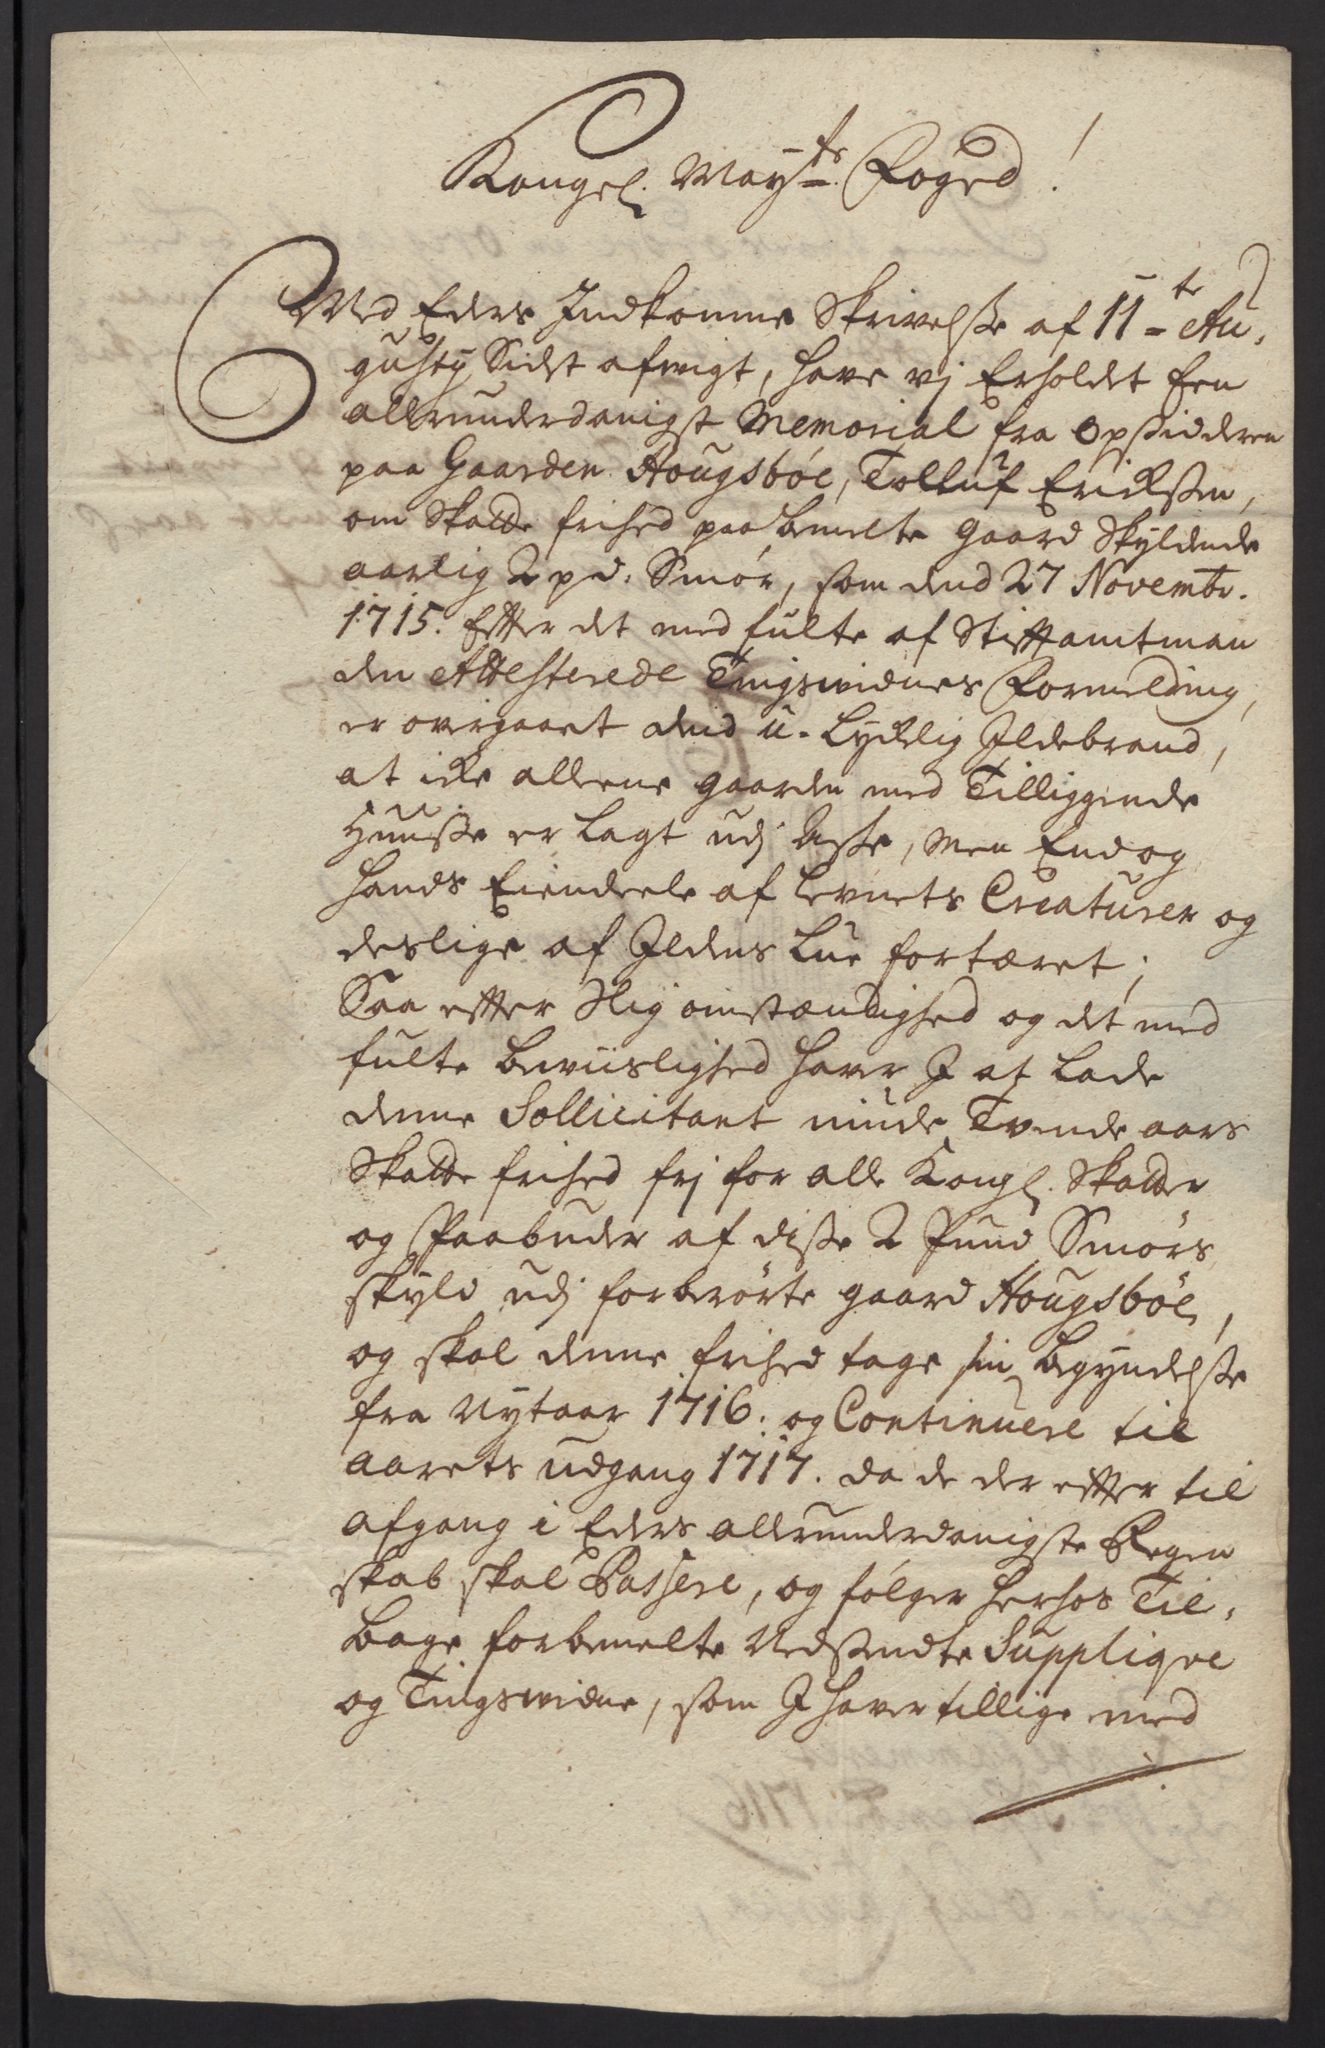 Kongel. Mayts. Foged!
Med Eders Indkomne Skrivelsse af 11te Au,
gusty Sidst afvigt, have vj Erholdet Een
allerunderdanigst Memorial fra Opsidderen
paa Gaarden Hougsböe, Tolluf Erichssen,
om Skatte frihed paa bemelte Gaard Skyldende
aarlig 2 pd. Smör, som dend 27 Novembr.
1715. Effter det med fulte af Stifftamtman
den Attesterede Tingsvidnes Formelding,
er overgaaet dend u-lychelig Ildebrand,
at iche alleene gaarden med Tilliggende
Huusse er lagt udj Asse, men Endog
hands Eiendeele af levnets Creaturer og
deslige af Ildens Lue fortæret;
Saa effter slig omstændighed og det med
fulte beviislighed haver I at lade
denne Sollicitant niude Tvende aars
Skatte frihed frj for alle Kongl. Skatter
og Paabuder af disse 2 Pund Smörs
skyld udj forberörte gaard Hougsböe,
og skal denne frihed tage sin begyndelsse
fra Nytaar 1716. og Continuere til
aarets udgang 1717. da de der effter til
afgang i Eders allerunderdanigste Regen
skab skal Passere, og fölger herhos Til,
bage forbemelte Nedsendte Suppliqve
og Tingsvidne, som I haver tillige med